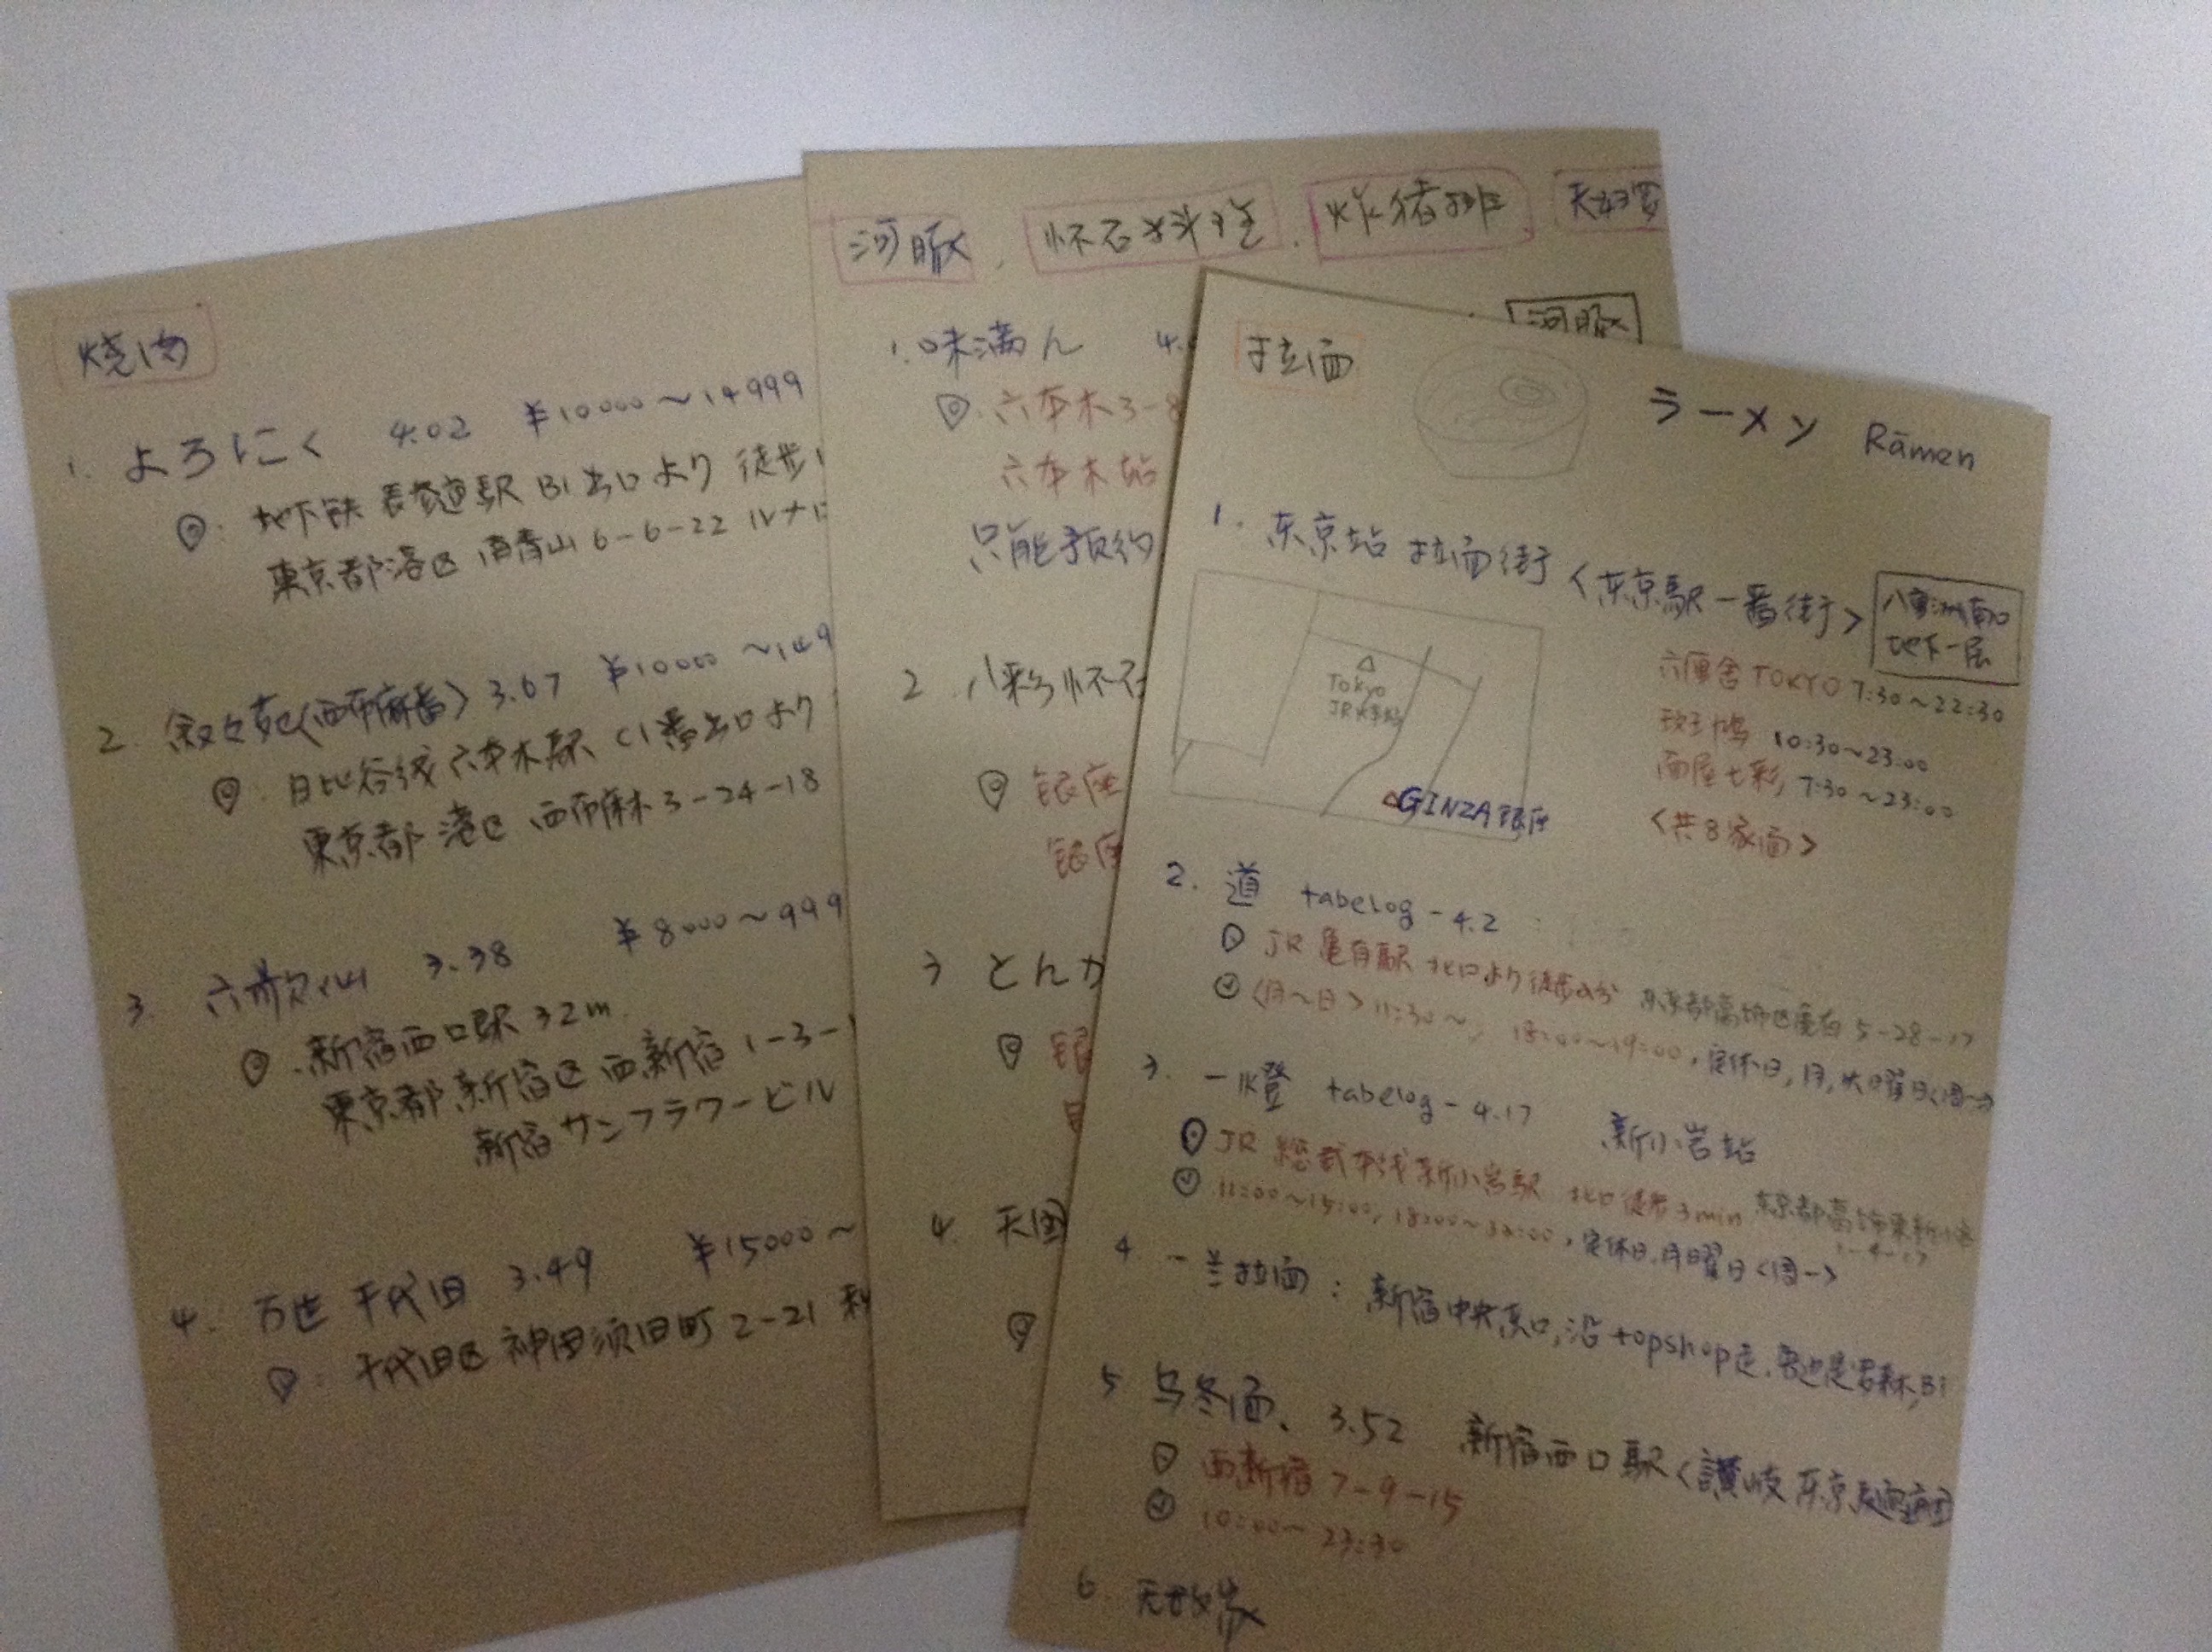 烧肉
1. よろにく 4.02 ¥10000～14999
地下鉄 表参道駅 B1出口より 徒歩
東京都港区 南青山 6-6-22 ルナロ
2. 叙々苑(西麻番) 3.67 ¥10000 ～149
日比谷线 六本木駅 C1番出口より
東京都 港区 西麻布 3-24-18
3. 六歌仙 3.38 ¥8000～999
新宿西口駅 32m
東京都 新宿区 西新宿 1-3-
新宿サンフラワービル
4. 万世 千代田 3.49 ¥15000～
千代田区 神田须田町 2-21
河豚、怀石料理、炸猪排
河豚
1. 味满ん 4.
六本木3-8
六本木站
只能预约
2. 八彩怀石
银座
银座
3 とんか
银
4. 天国
拉面
ラーメン Rāmen
1. 东京站 拉面街 <东京駅一番街>
八重洲南口
地下一层
Tokyo
JR
GINZA 银座
六厘舍 TOKYO 7:30～22:30
10:30～23:00
面屋七彩 7:30～23:00
<共8家面>
2. 道 tabelog-4.2
JR 亀有駅 北口より徒歩 东京都葛饰区亀有 5-28-17
<月～日> 11:30～, 18:00～19:00, 定休日, 月, 火曜日<周一>
3. 一燈 tabelog-4.17 新小岩站
JR 総武本线新小岩駅 北口徒歩3min 东京都葛饰東新小岩
1-4-17
11:00～15:00, 18:00～22:00, 定休日, 月曜日<周一>
4 一兰拉面: 新宿中央东口, 沿topshop走, B1
5 乌冬面、3.52 新宿西口駅<讃岐 东京
西新宿 7-9-15
10:00～23:30
6 无敌家